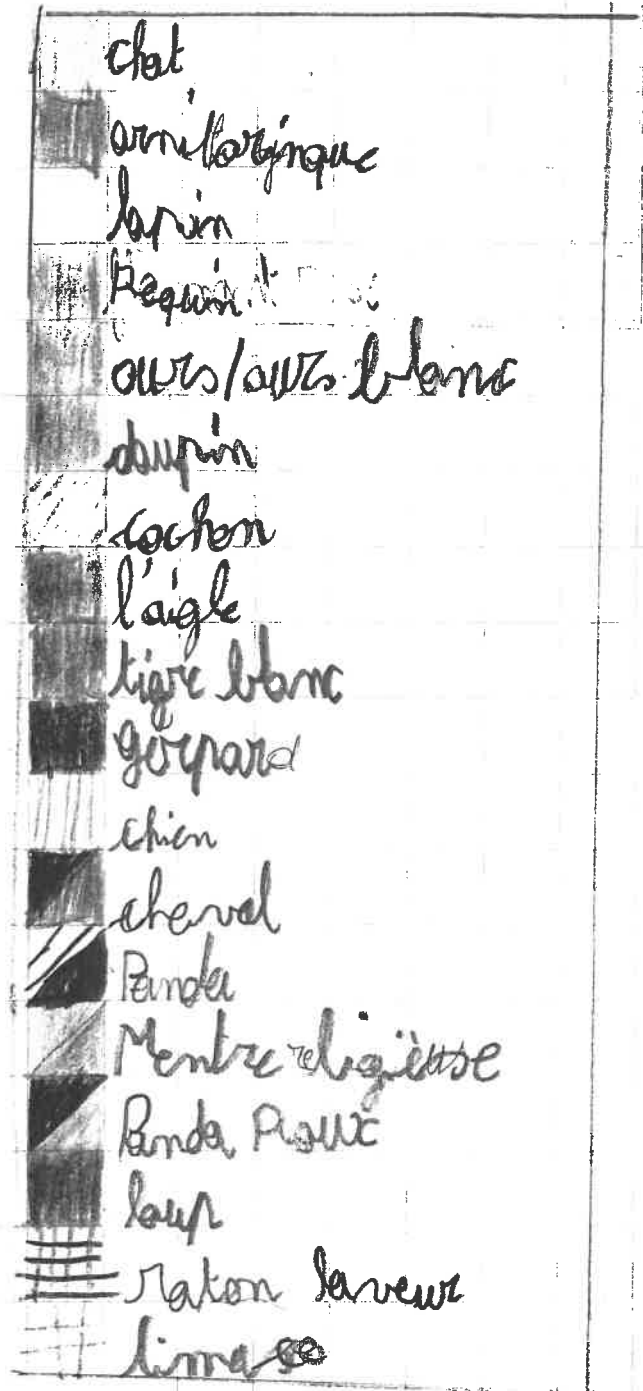 chat
ornitorinque
lapin
Requin
ours/ours blanc
daupin
cochon
l'aigle
tigre blanc
gérpard
chien
cheval
Panda
Mentre religieuse
Panda Roux
loup
raton laveur
limase